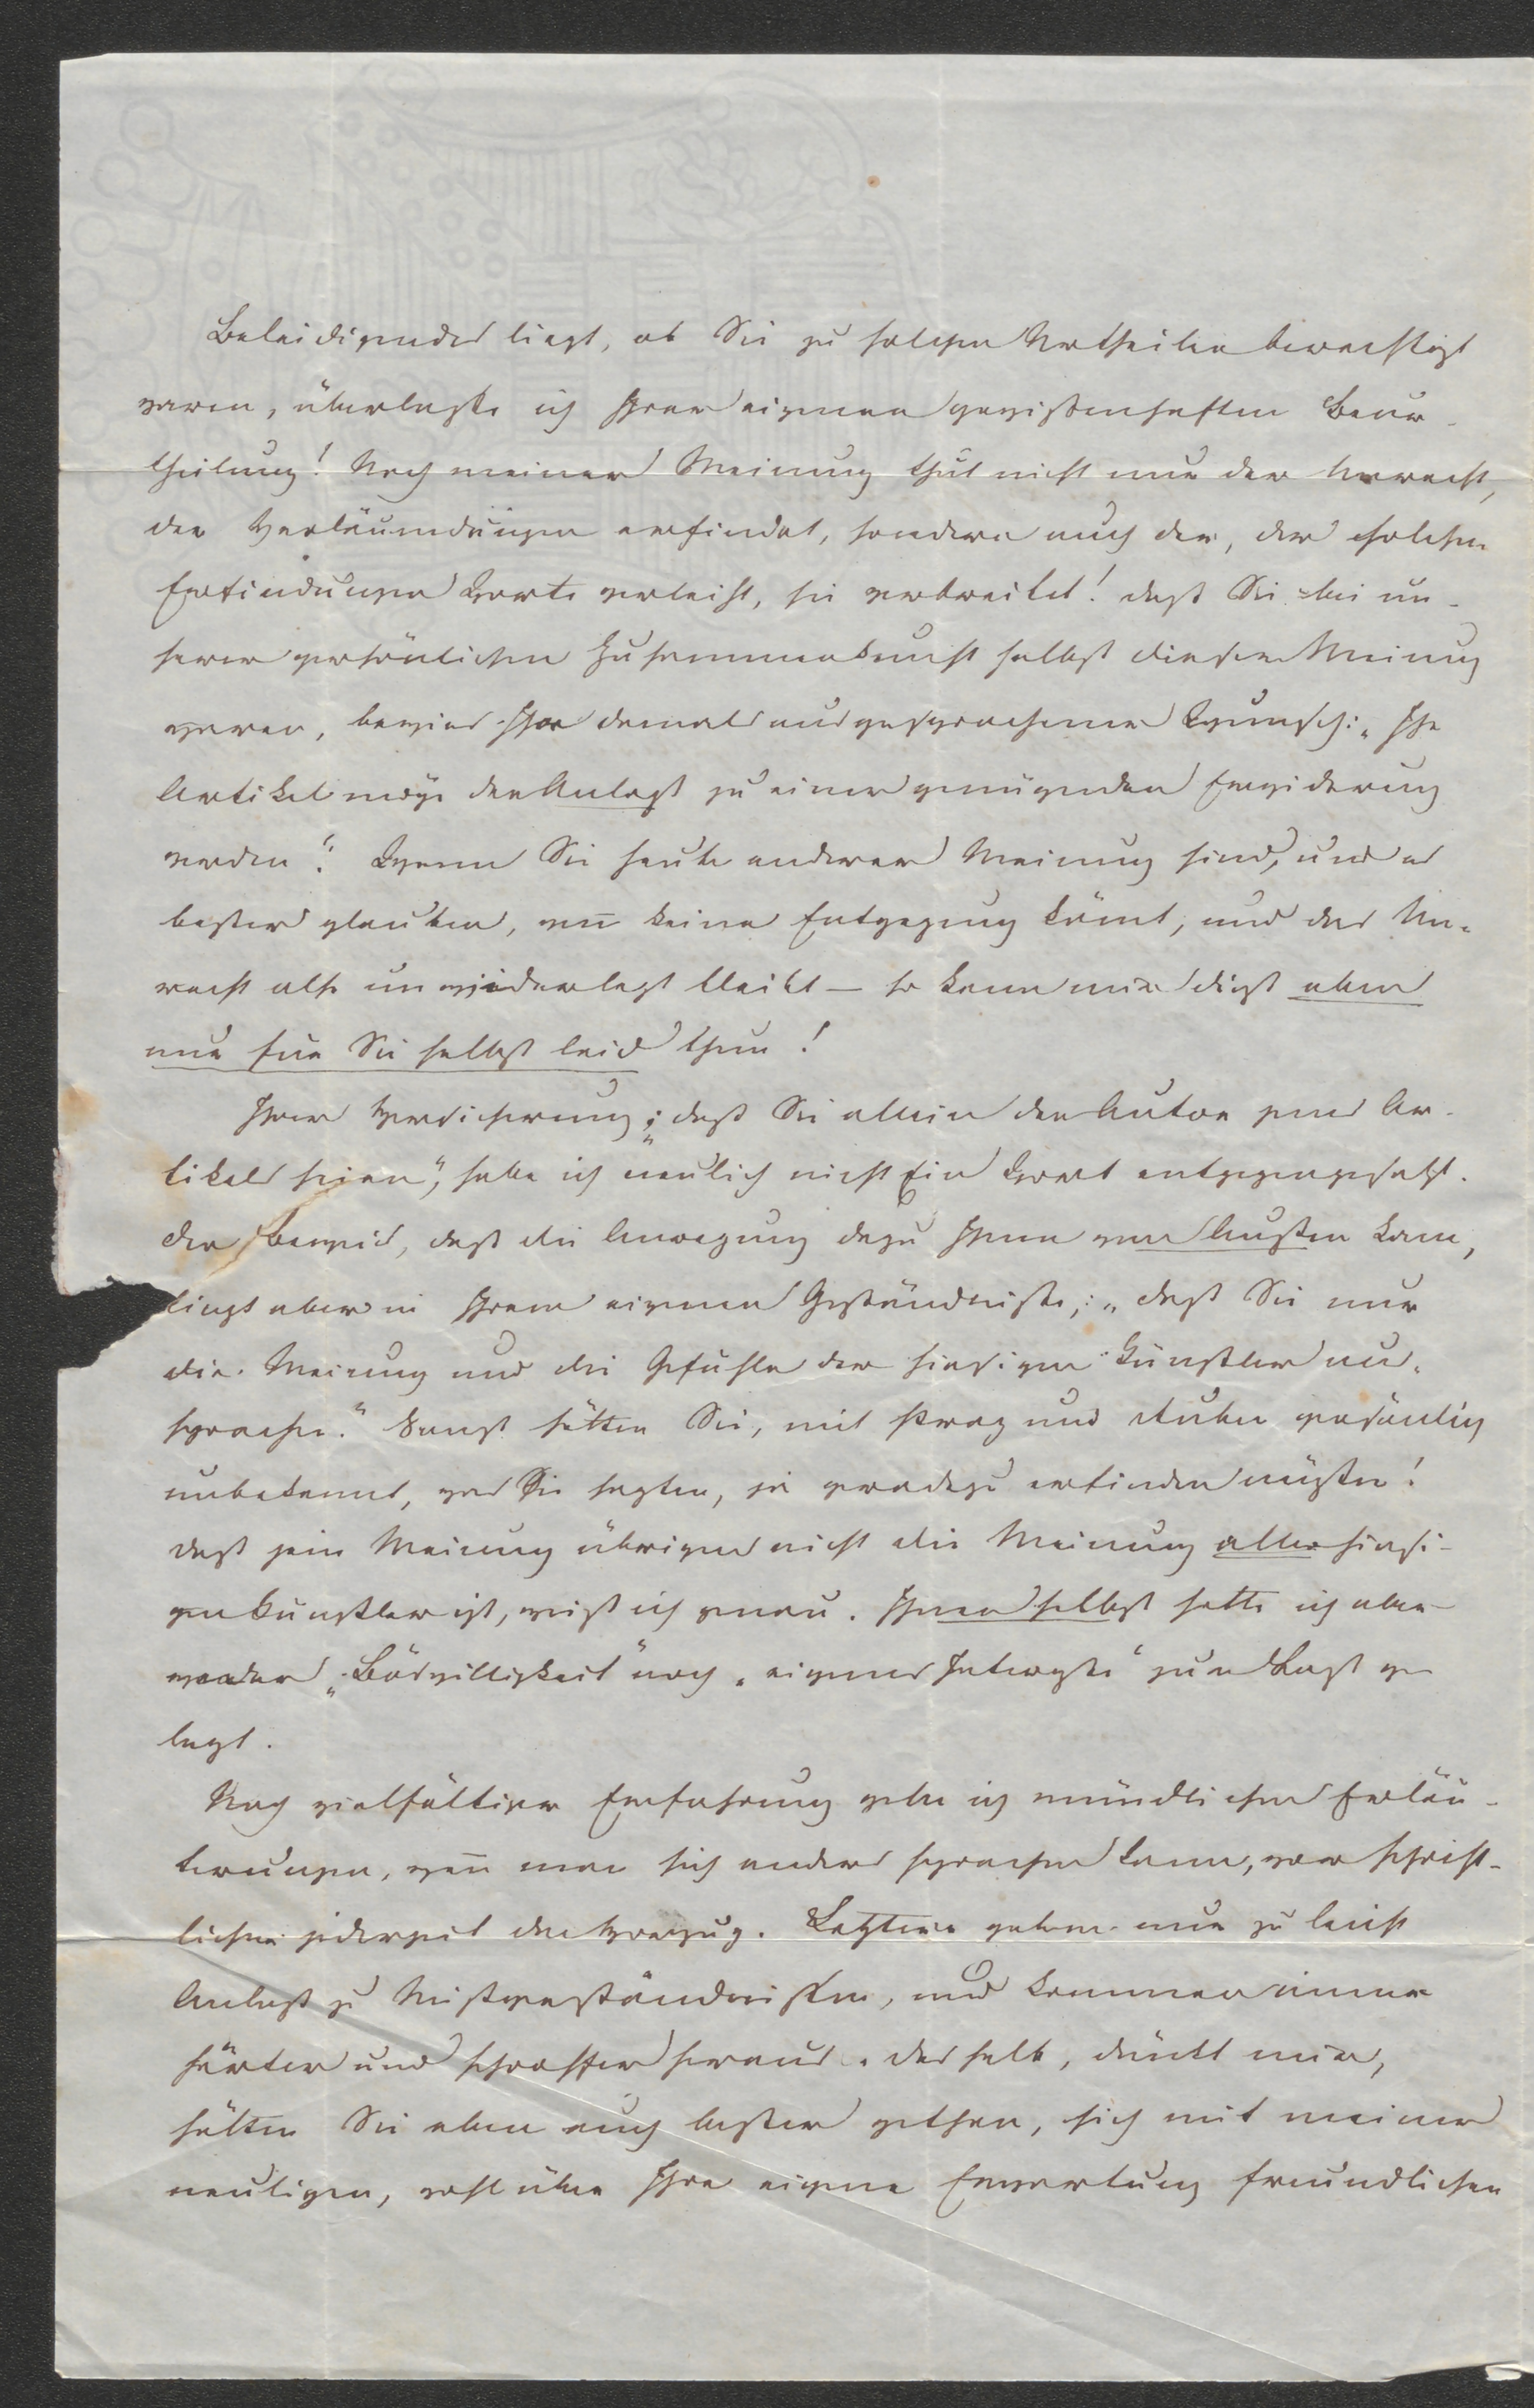 Beleidigendes liegt, ob Sie zu solchen Urtheilen berechtigt
waren, überlaße ich Ihrer eigenen gewißenhaften Beur-
theilung! Nach meiner Meinung thut nicht nur der Unrecht,
der Verläumdungen erfindet, sondern auch der, der solchen
Erfindungen Worte verleiht, sie verbreitet! daß Sie bei un-
serer persönlichen Zusammenkunft selbst dieser Meinung
waren, bewies Ihr damals ausgesprochener Wunsch: „Ihr
Artikel möge der Anlaß zu einer genügenden Erwiderung
werden“. Wenn Sie heute anderer Meinung sind, und es
besser glauben, weñ keine Entgegnung kömt, und das Un-
recht also unwiederlegt bleibt – so kann mir dieß aber
nur für Sie selbst leid thun!
Ihrer Versicherung: „daß Sie allein der Autor jenes Ar-
tikels seien“, habe ich neulich nicht Ein Wort entgegengesetzt.
Der Beweis, daß die Anregung dazu Ihnen von Außen kam,
liegt aber in Ihrem eigenen Geständniße: „daß Sie nur
die Meinung und die Gefühle der hiesigen Künstler aus-
sprachen.“ Sonst hätten Sie, mit Prag und Ruben persönlich
unbekannt, was Sie sagten, ja geradezu erfinden müßen!
daß jene Meinung übrigens nicht die Meinung aller hiesi-
gen Künstler ist, weiß ich genau. Ihnen selbst hatte ich aber
weder „Böswilligkeit“ noch „eigenes Intereße“ zur Last ge
legt.
Nach vielfältiger Erfahrung gebe ich mündlichen Erläu-
terungen, weñ man sich anders sprechen kann, vor schrift-
lichen jederzeit den Vorzug. Letztere geben nur zu leicht
Anlaß zu Mißverständnißen, und kommen immer
härter und schroffer heraus. deshalb, dünkt mir,
hätten Sie aber auch besser gethan, sich mit meiner
neuligen, wohl über Ihre eigene Erwartung freundlichen